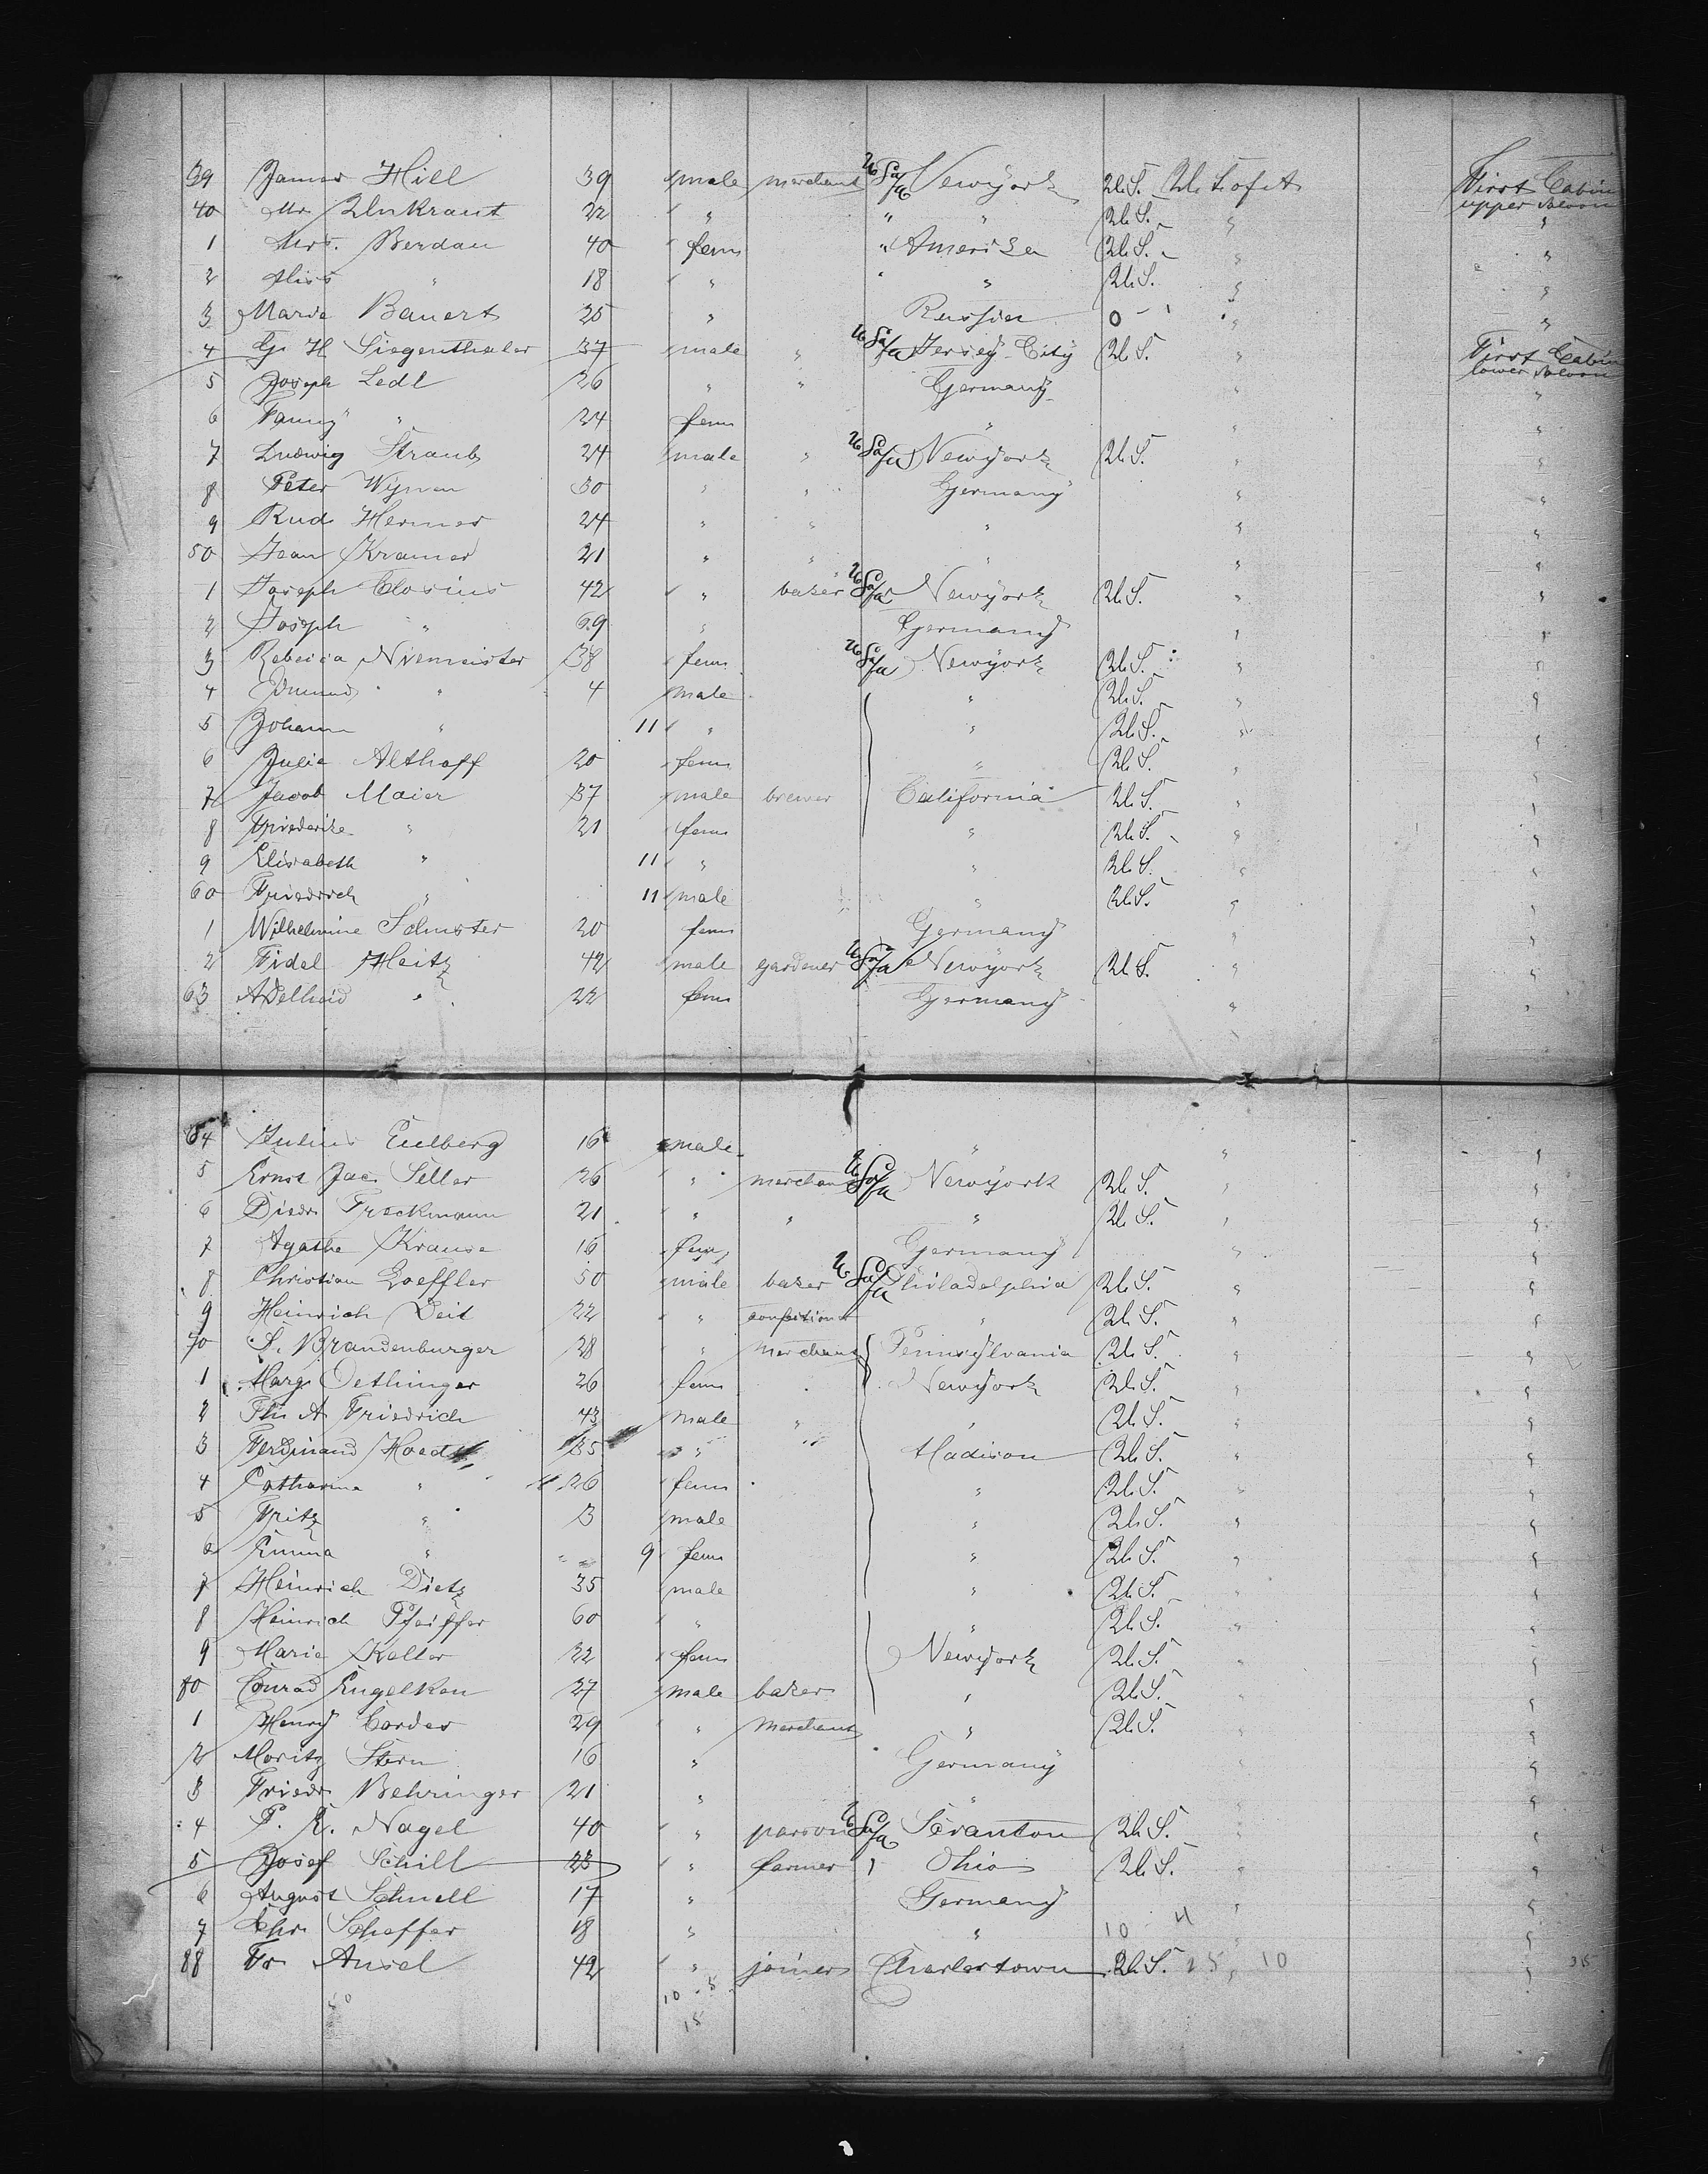 39 James Hill 39 male merchant USofA Newyork U.S. U. S. of A First Cabin upper saloon
40 Mr. Unkraut 22 " " " U.S. " "
1 Mrs. Berdan 40 fem " America U.S. " "
2 Miss " 18 " " " U.S. " "
3 Marie Bauert 25 " Russia 0 " "
4 G. H. Siegenthaler 37 male " USofA Jersey-City U.S. " First Cabin lower saloon
5 Joseph Ledl 26 " " Germany " "
6 Fanny " 24 fem " " "
7 Ludwig Straub 24 male " USofA Newyork U.S. " "
8 Peter 30 " " Germany " "
9 Rud. Hermes 24 " " " " "
50 Jean Kramer 21 " " " " "
1 Joseph Closius 42 " baker USofA Newyork U.S. " "
2 Joseph " 69 " Germany " "
3 Rebecca Niemeister 38 fem USofA Newyork U.S. " "
4 Edmund " 4 male " U.S. " "
5 Johann " 11 " " U.S. " "
6 Julie Althoff 20 fem " U.S. " "
7 Jacob Maier 37 male brewer California U.S. " "
8 Friederike " 21 fem " U.S. " "
9 Elisabeth " 11 " " U.S. " "
60 Friedrich " 11 male " U.S. " "
1 Wilhelmine 20 fem Germany " "
2 Fidel Heitz 42 male gardener USofA Newyork U.S. " "
63 Adelheid " 22 fem Germany " "
64 Julius Eulberg 16 male " " "
5 Ernst Jac. Seller 26 " merchant USofA Newyork U.S. " "
6 Diedr. Freckmann 21 " " " U.S. " "
7 Agathe Krause 16 fem Germany " "
8 Christian Loeffler 50 male baker USofA Philadelphia U.S. " "
9 Heinrich Deit 22 " " U.S. " "
70 S. Brandenburger 28 " merchant Pennsylvania U.S. " "
1 Marg. Oethinger 26 fem Newyork U.S. " "
2 Th. A. Friedrich 43 male " " U.S. " "
3 Ferdinand 35 " " Madison U.S. " "
4 Catharina " 26 fem " U.S. " "
5 Fritz " 3 male " U.S. " "
6 Emma " 9 fem " U.S. " "
7 Heinrich Dietz 35 male " U.S. " "
8 Heinrich Pfeiffer 60 " " U.S. " "
9 Marie Keller 22 fem Newyork U.S. " "
80 Conrad Engelken 27 male baker " U.S. " "
1 Henry Cordes 29 " merchant " U.S. " "
2 Moritz Stern 16 " Germany " "
3 Friedr. Behringer 21 " " " "
4 P. E. Nagel 40 " parson USofA Scranton U.S. " "
5 Josef Schill 23 " farmer Ohio U.S. " "
6 August Schnell 17 " Germany " "
7 Chr. Scheffer 18 " " 10 4 " "
88 Fr. Ansel 42 " joiner Charlestown U.S. 25 10 "
10 5
15